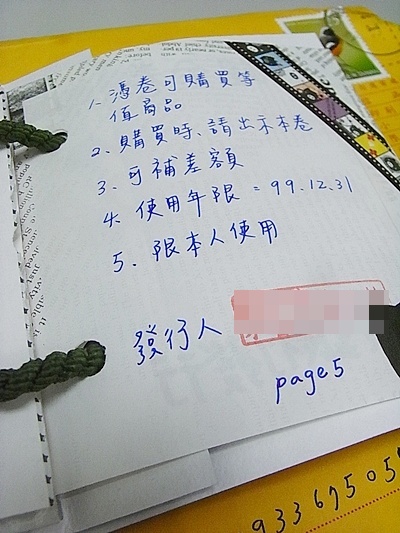 1. 憑卷可購買等
值商品
2. 購買時、請出示本卷
3. 可補差額
4. 使用年限 = 99.12.31
5. 限本人使用
發行人
page 5
93367505